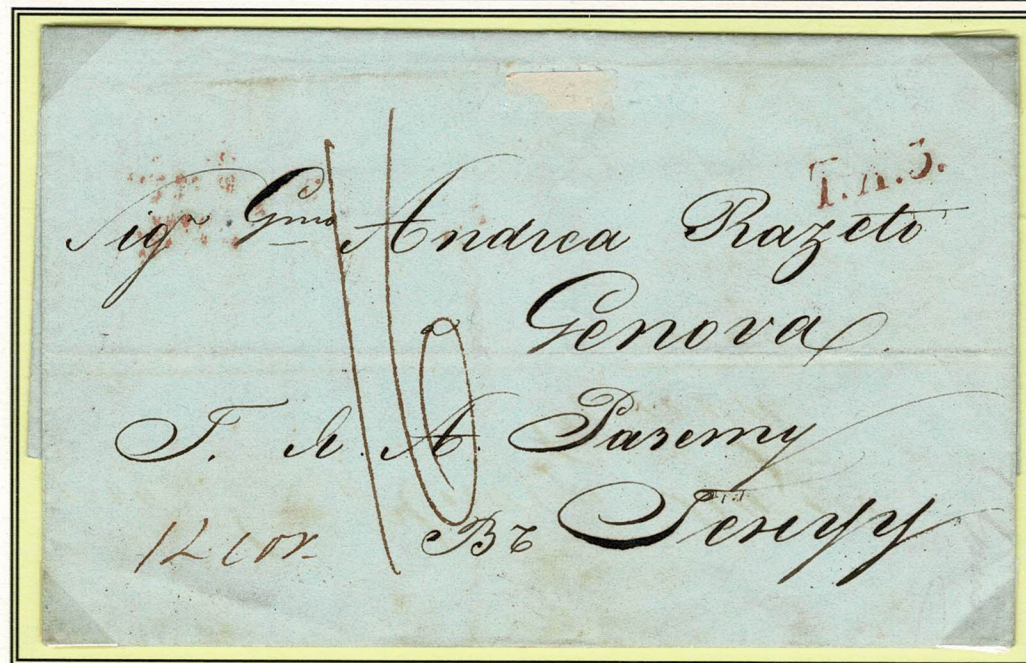 T.A.5.
Sigr Gmo Andrea Razeto
Genova
Г. А. А. Разету
Въ Геную
16
12 cor.